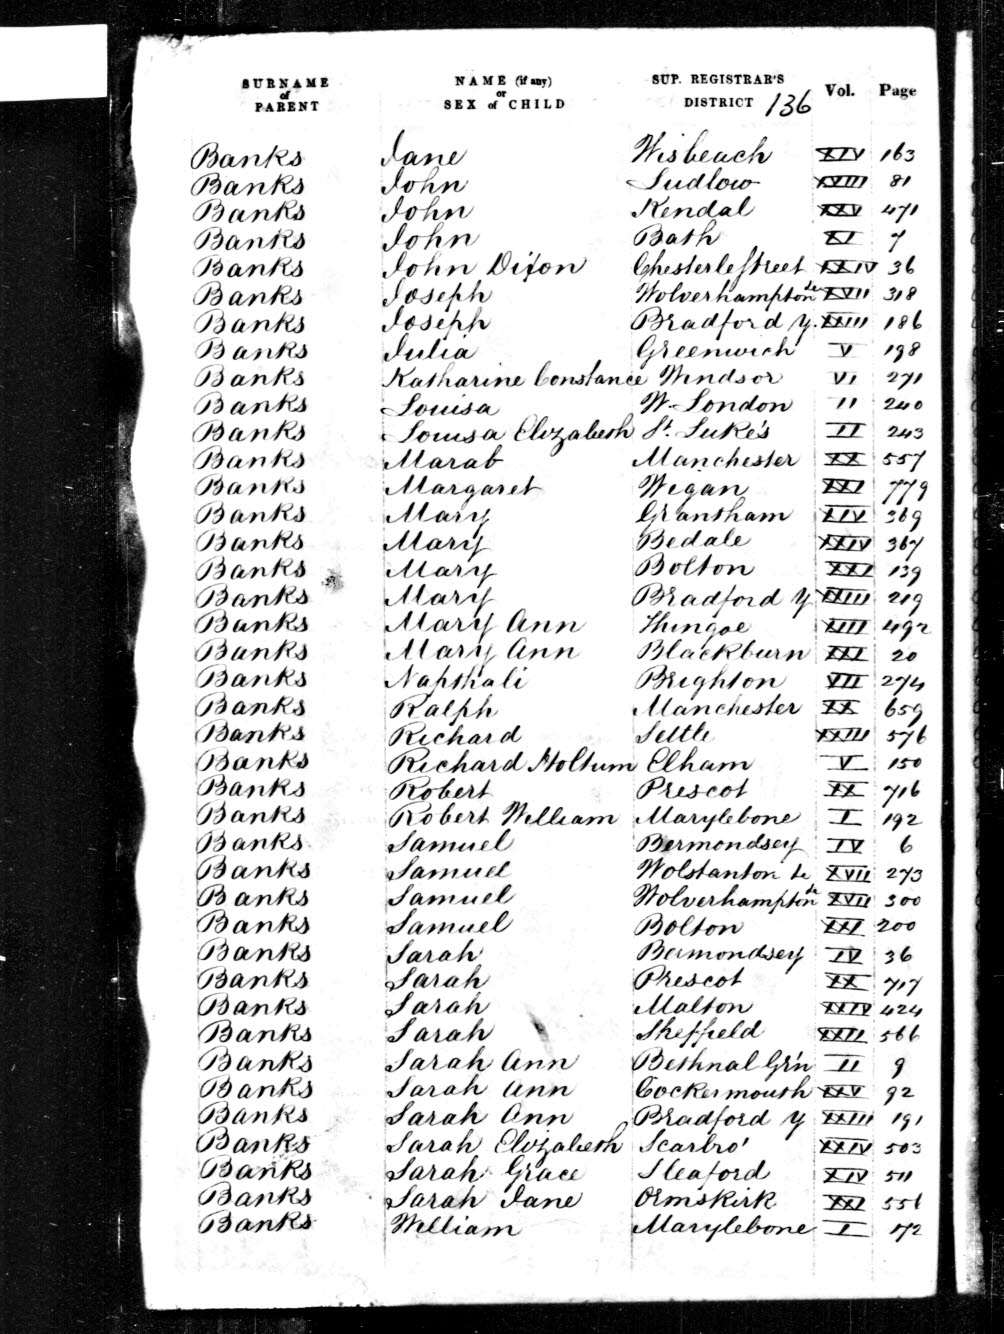 SURNAME of PARENT NAME (if any) or SEX of CHILD SUP. REGISTRAR'S DISTRICT 136 Vol. Page
Banks Jane Wisbeach XIV 163
Banks John Ludlow XVIII 81
Banks John Kendal XXV 471
Banks John Bath XI 7
Banks John Dixon Chesterlestreet XXIV 36
Banks Joseph Wolverhampton &c XVII 318
Banks Joseph Bradford Y. XXIII 186
Banks Julia Greenwich V 198
Banks Katharine Constance Windsor VI 271
Banks Louisa W. London II 240
Banks Louisa Elizabeth St. Luke's II 243
Banks Marab Manchester XX 557
Banks Margaret Wigan XXI 779
Banks Mary Grantham XIV 369
Banks Mary Bedale XXIV 367
Banks Mary Bolton XXI 139
Banks Mary Bradford Y XXIII 219
Banks Mary Ann Thingoe XIII 492
Banks Mary Ann Blackburn XXI 20
Banks Napthali Brighton VII 274
Banks Ralph Manchester XX 659
Banks Richard Settle XXIII 576
Banks Richard Holtum Elham V 150
Banks Robert Prescot XX 716
Banks Robert William Marylebone I 192
Banks Samuel Bermondsey IV 6
Banks Samuel Wolstanton &c XVII 273
Banks Samuel Wolverhampton &c XVII 300
Banks Samuel Bolton XXI 200
Banks Sarah Bermondsey IV 36
Banks Sarah Prescot XX 717
Banks Sarah Malton XXIV 424
Banks Sarah Sheffield XXII 566
Banks Sarah Ann Bethnal Grn II 9
Banks Sarah Ann Cockermouth XXV 92
Banks Sarah Ann Bradford Y XXIII 191
Banks Sarah Elizabeth Scarbro' XXIV 503
Banks Sarah Grace Sleaford XIV 511
Banks Sarah Jane Ormskirk XXI 556
Banks William Marylebone I 172